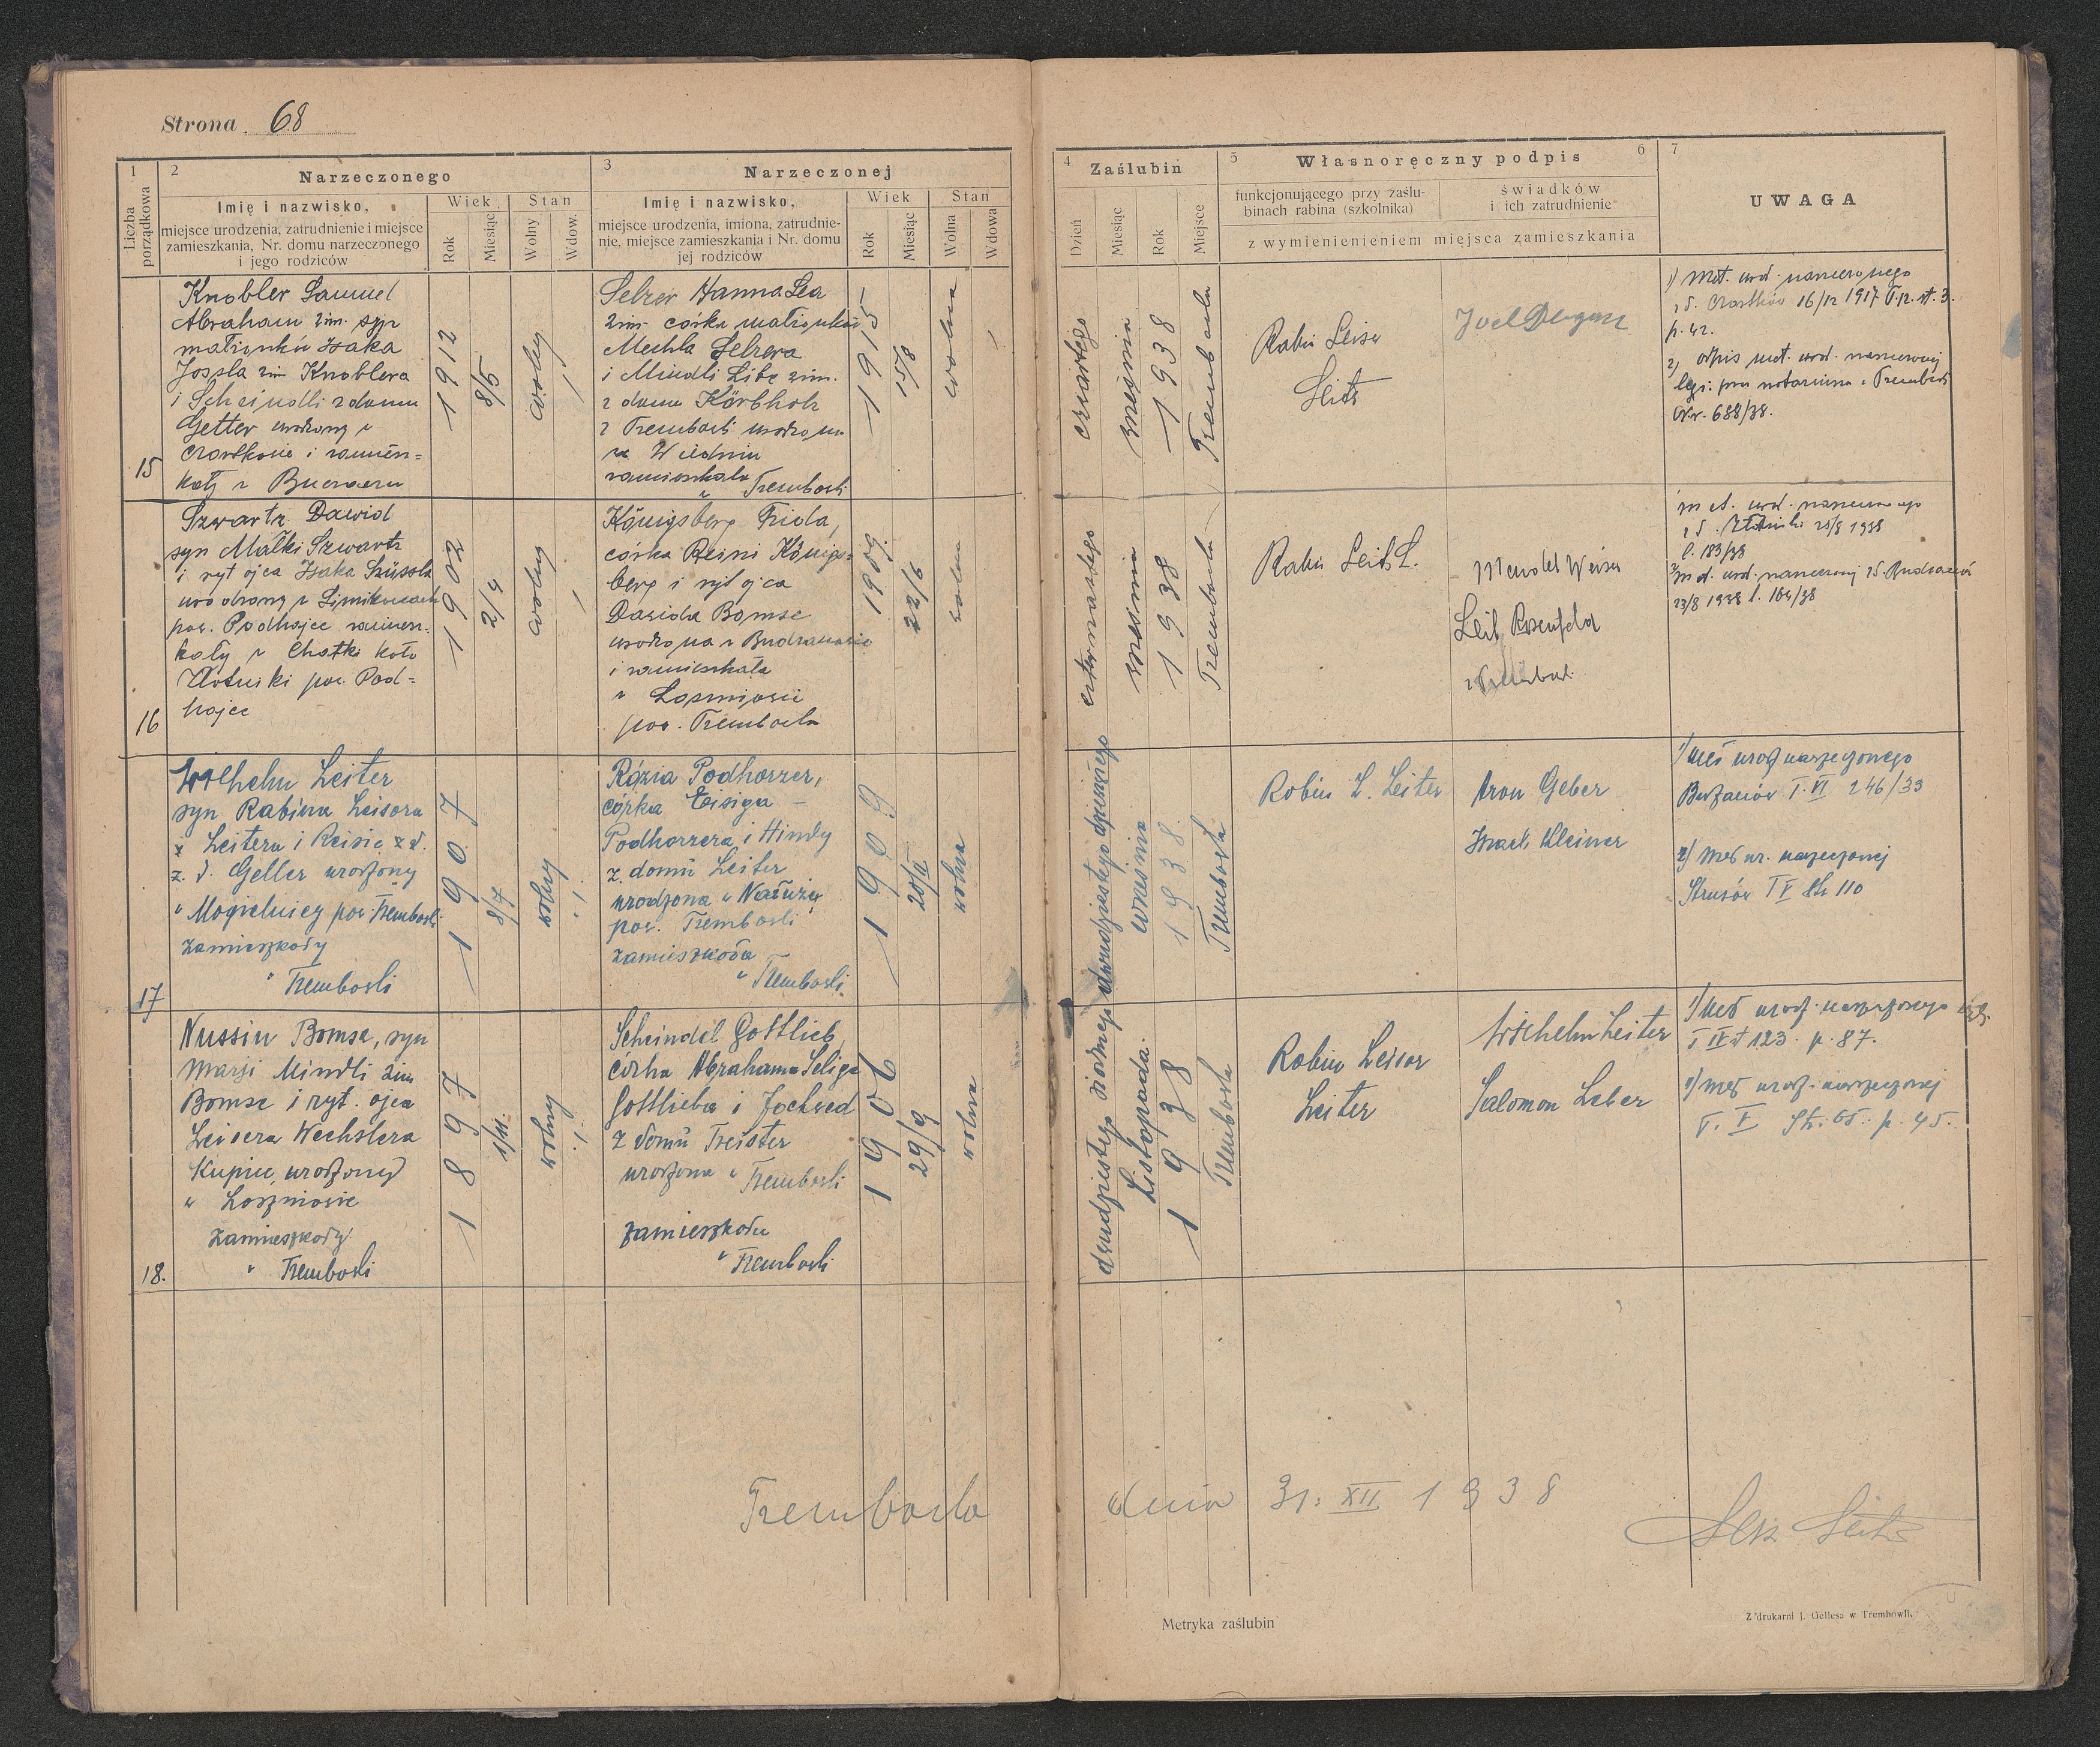 Strona 68
1
Liczba porządkowa
2
Narzeczonego
Imię i nazwisko,
miejsce urodzenia, zatrudnienie i miejsce
zamieszkania, Nr. domu narzeczonego
i jego rodziców
Wiek
Rok
Miesiąc
Stan
Wolny
Wdow.
3
Narzeczonej
Imię i nazwisko,
miejsce urodzenia, imiona, zatrudnie-
nie, miejsce zamieszkania i Nr. domu
jej rodziców
Wiek
Rok
Miesiąc
Stan
Wolna
Wdowa
4
Zaślubin
Dzień
Miesiąc
Rok
Miejsce
5
Własnoręczny podpis
6
funkcjonującego przy zaślu-
binach rabina (szkolnika)
świadków
i ich zatrudnienie
z wymienienieniem miejsca zamieszkania
7
UWAGA
15
Knobler Samuel
Abraham 2im. syn
małżonków Izaka
Jossla 2im Knoblera
i Scheindli z domu
Getter urodzony w
Czortkowie i zamiesz=
kały w Buczaczu
1912
8/5
wolny
Selzer Hanna Lea
2im. córka małżonków
Mechla Selzera
i Mindli Libe 2im.
z domu Körbholz
z Trembowli urodzona
w Wiedniu
zamieszkała
w Trembowli
1915
15/8
wolna
czwartego
września
1938
Trembowla
Rabin Leiser
Leiter
Joel
1) Met. urod. narzeczonego
z d. Czortków 16/12 1917 T.12. st. 3.
p. 42.
2) odpis met. urod. narzeczonej
leg. przez notariusza w Trembowli
Nr. 688/38.
16
Szwartz Dawid
syn Małki Szwartz
i ryt ojca Izaka Süssla
urodzony w
pow. Podhajce zamiesz-
kały w Chatki koło
Złotniki pow. Pod=
hajce
1902
2/4
wolny
Königsberg Frida,
córka Reini Königs=
berg i ryt ojca
Dawida Bomse
urodzona w Budzanowie
i zamieszkała
w Łoszniowie
pow. Trembowla
1909
22/6
wolna
czternastego
września
1938
Trembowla
Rabin Leiter L.
Mendel Weiser
Leib Rosenfeld
z Trembowli
met. urod. narzeczonego
z d. Złotniki 25/8 1938
l. 183/38
2) met. urod. narzeczonej z d. Budzanów
23/8 1938 l. 164/38
17
Wilhelm Leiter
syn Rabina Leisora
Leitera i Reisie z d.
z. d. Geller urodzony
w Mogielnicy pow. Trembowli
zamieszkały
w Trembowli
1907
8/7
wolny
Rózia Podhorzer,
córka Eisiga
Podhorzera i Hindy
z domu Leiter
urodzona w Nałużu
pow. Trembowli
zamieszkała
w Trembowli
1909
20/II
wolna
dwudziestego dziewiątego
września
1938.
Trembowla
Robin L. Leiter
Aron Geber
Izrael Kleiner
1) met urodz narzeczonego
Budzanów T. VI 246/33
2) met ur. narzeczonej
Strusów T V str 110
18.
Nussin Bomse, syn
Marji Mindli 2im
Bomse i ryt. ojca
Leisera Wechslera
Kupiec, urodzony
w Łoszniowie
zamieszkały
w Trembowli
1897
wolny
Scheindel Gottlieb
córka Abrahama Seliga
Gottlieba i Jochwed
z domu Treister
urodzona w Trembowli
zamieszkała
w Trembowli
1906
29/9
wolna
dwudziestego siódmego
Listopada.
1938
Trembowla
Robin Leisor
Leiter
Wilhelm Leiter
Salomon Leber
1) met urodz. narzeczonego
T IV st 123. p. 87.
2) met urodz. narzeczonej
T. V St. 65. p. 45.
Trembowla dnia 31. XII 1938
Metryka zaślubin
Z drukarni J. Gellesa w Trembowli.